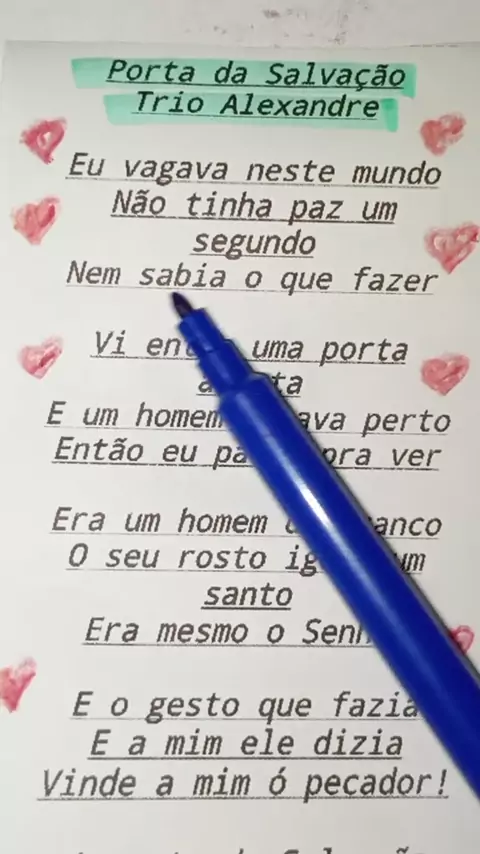 Porta da Salvação
Trio Alexandre
Eu vagava neste mundo
Não tinha paz um
segundo
Nem sabia o que fazer
Vi uma porta
E um homem perto
Então eu pra ver
Era um homem
O seu rosto
santo
Era mesmo o
E o gesto que fazia
E a mim ele dizia
Vinde a mim ó pecador!